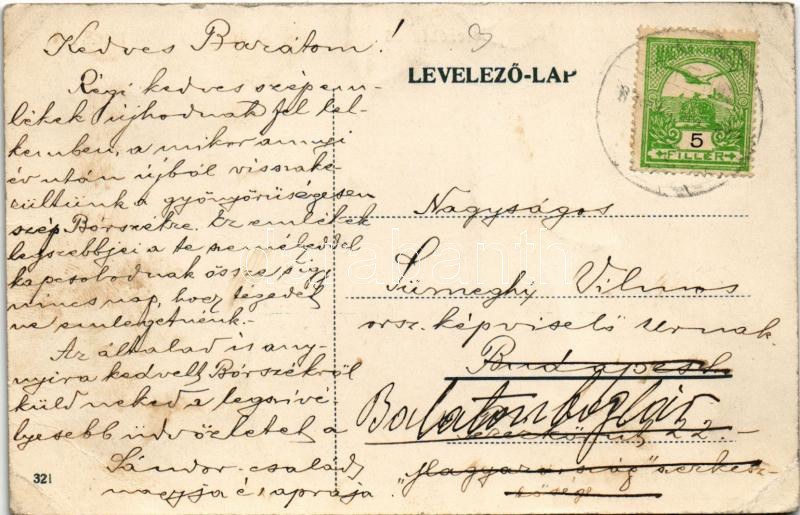 Kedves Barátom!
Régi kedves szép em-
lékek újhodnak fel lel-
kemben, a mikor annyi
év után újból visszake-
rültünk a gyönyörűségesen
szép Bórszékre. Ez emlékek
legszebbjei a te személyeddel
kapcsolódnak össze s így
nincs nap, hogy tégedet
ne emlegetnénk.
Az általad is any-
nyira kedvelt Bórszékről
küld neked a legszivé-
lyesebb üdvözletet a
Sándor-család
nagyja és apraja.
321
LEVELEZŐ-LAP
MAGYAR KIR. POSTA
5
FILLÉR
Nagyságos
Sümeghy Vilmos
orsz. képviselő Urnak
Budapest
Balatonboglár
Teréz körút 22.-
"Magyarország" szerkesz-
tősége
darabanth